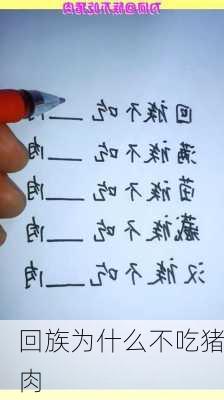 为何回族不吃猪肉
回族不吃___肉
满族不吃___肉
苗族不吃___肉
藏族不吃___肉
汉族不吃___肉
回族为什么不吃猪
肉